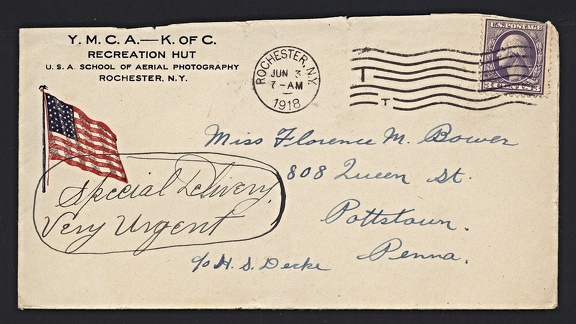 Y. M. C. A.—K. OF C.
RECREATION HUT
U. S. A. SCHOOL OF AERIAL PHOTOGRAPHY
ROCHESTER, N.Y.
ROCHESTER, N.Y.
JUN 3
7-AM
1918
U.S. POSTAGE
3 CENTS 3
Miss Florence M. Bower
808 Queen St.
Pottstown.
Penna.
c/o H. S. Decke
Special Delivery
Very Urgent